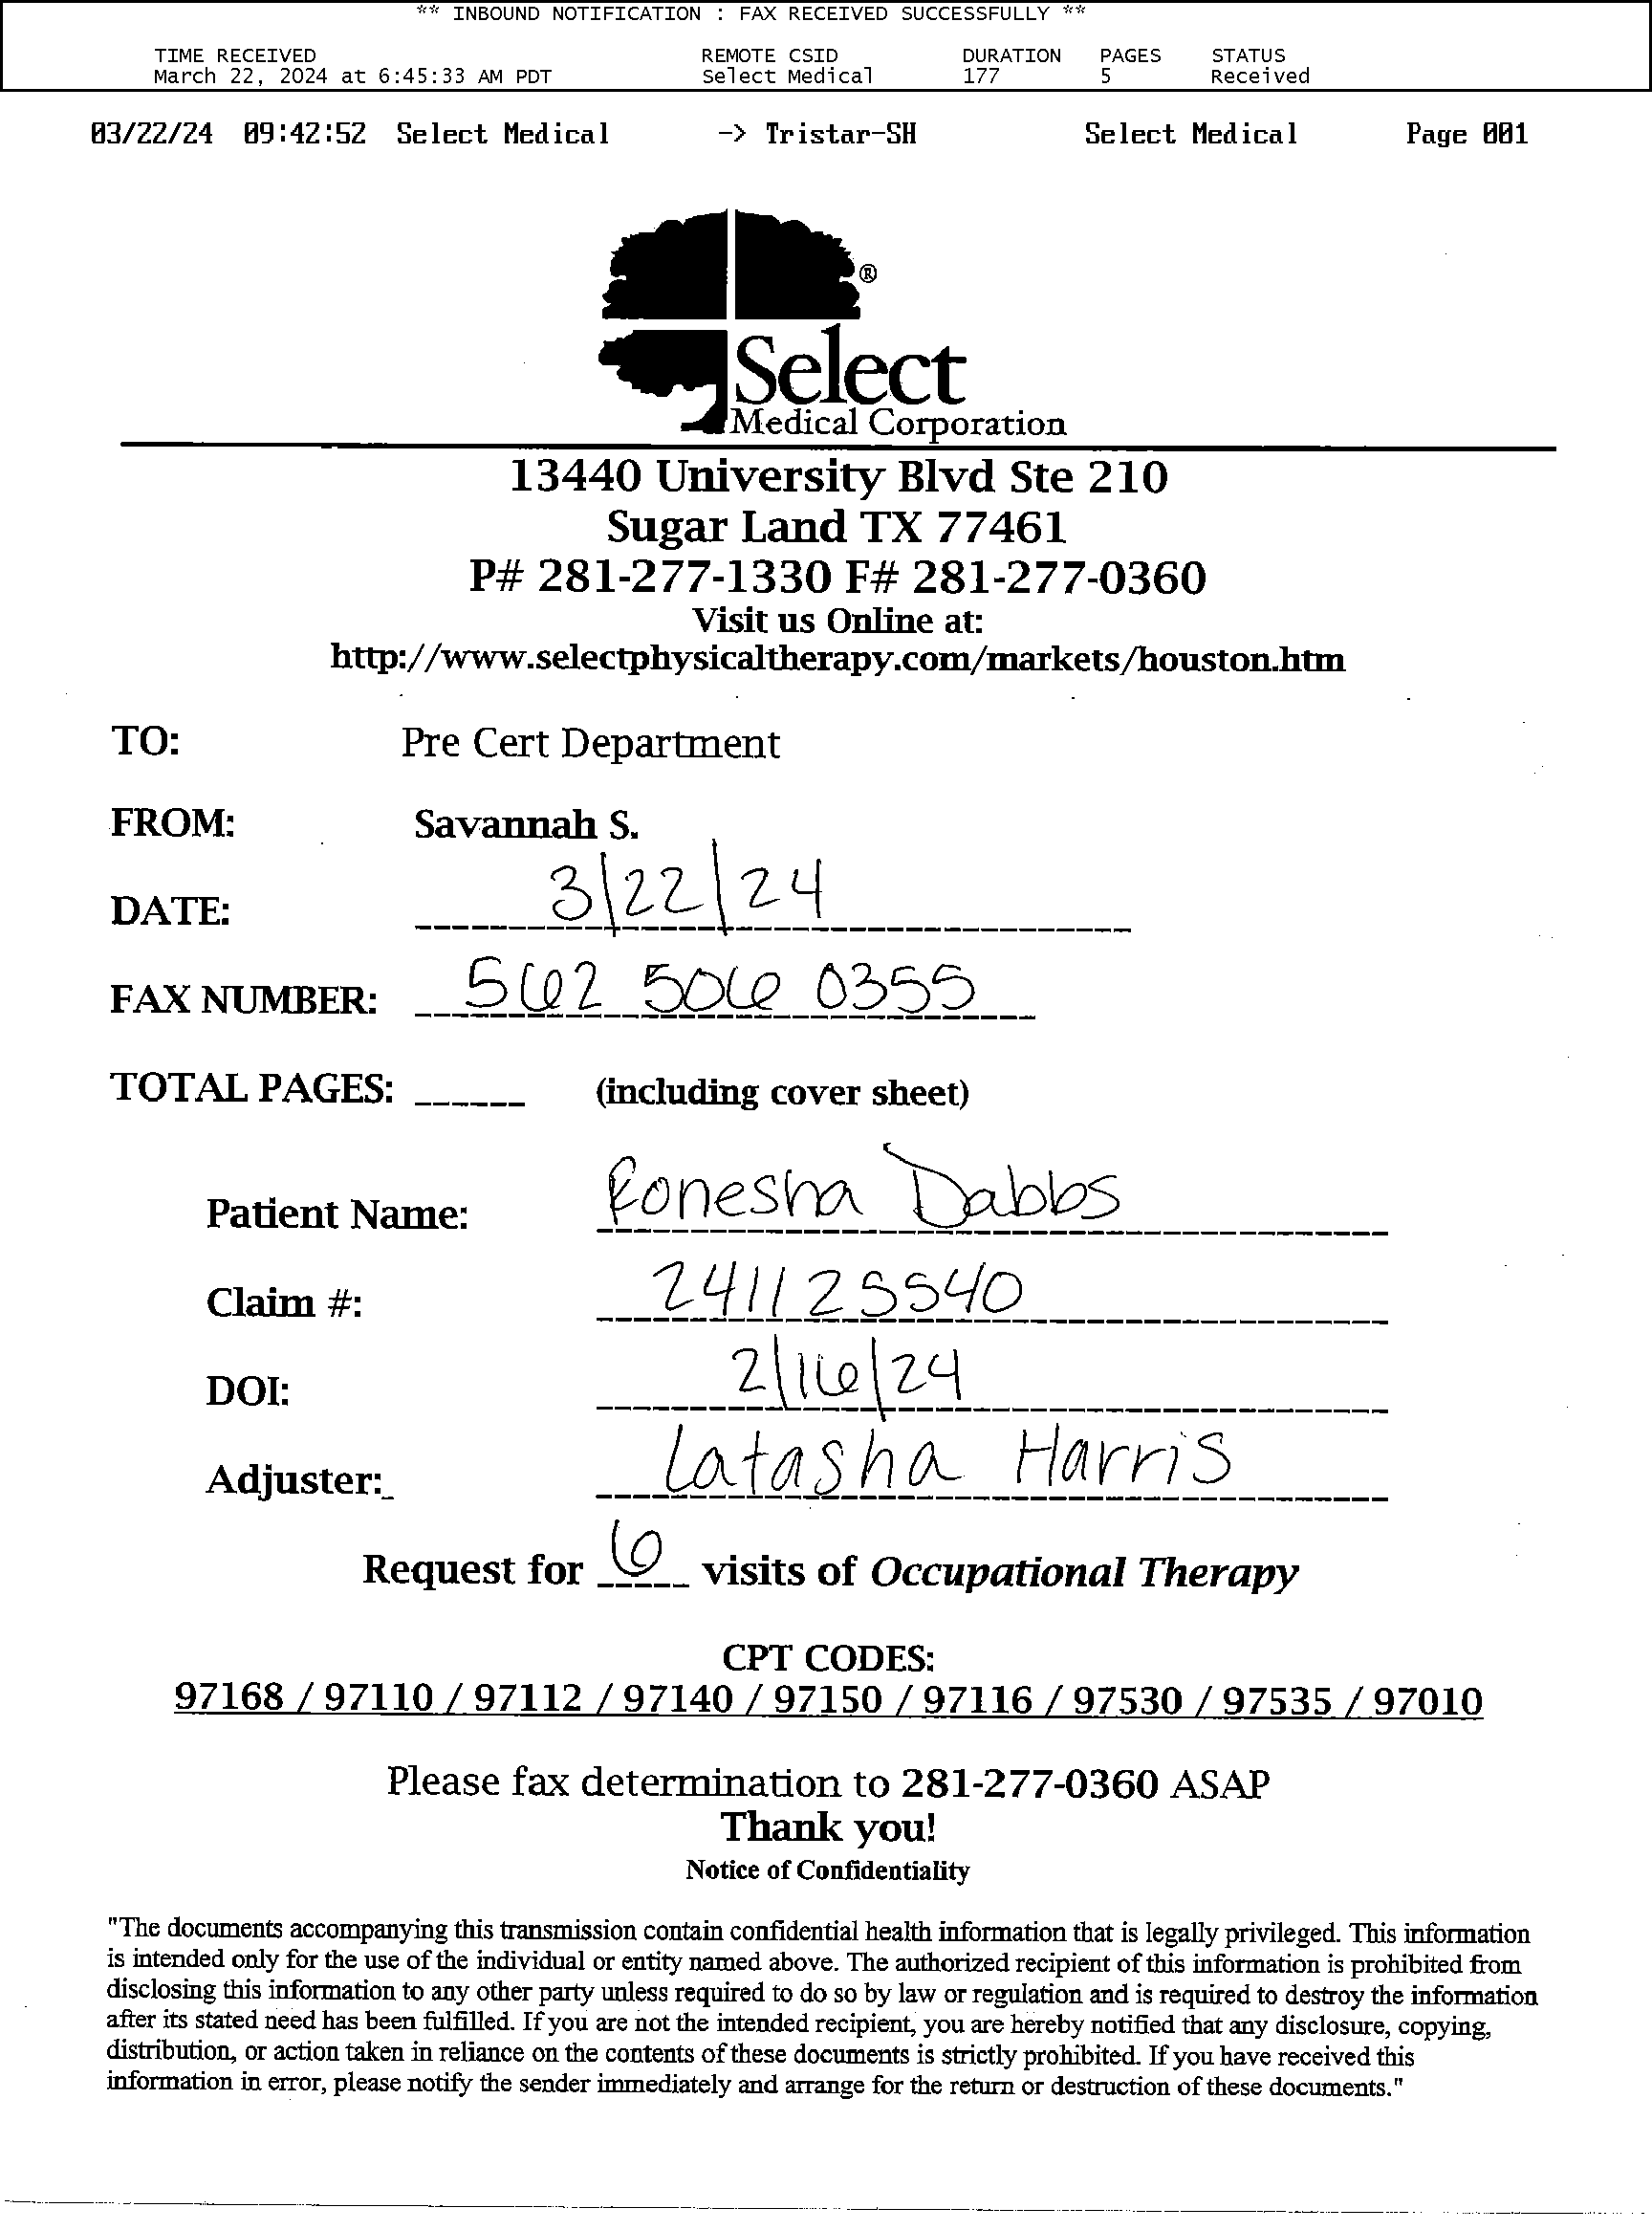 ** INBOUND NOTIFICATION : FAX RECEIVED SUCCESSFULLY **
TIME RECEIVED REMOTE CSID DURATION PAGES STATUS
March 22, 2024 at 6:45:33 AM PDT Select Medical 177 5 Received
03/22/24 09:42:52 Select Medical -> Tristar-SH Select Medical Page 001
®
Select
Medical Corporation
13440 University Blvd Ste 210
Sugar Land TX 77461
P# 281-277-1330 F# 281-277-0360
Visit us Online at:
http://www.selectphysicaltherapy.com/markets/houston.htm
TO: Pre Cert Department
FROM: Savannah S.
DATE: 3/22/24
FAX NUMBER: 562 506 0355
TOTAL PAGES: ______ (including cover sheet)
Patient Name: Ronesha Dabbs
Claim #: 241125540
DOI: 2/16/24
Adjuster: Latasha Harris
Request for 6 visits of Occupational Therapy
CPT CODES:
97168 / 97110 / 97112 / 97140 / 97150 / 97116 / 97530 / 97535 / 97010
Please fax determination to 281-277-0360 ASAP
Thank you!
Notice of Confidentiality
"The documents accompanying this transmission contain confidential health information that is legally privileged. This information
is intended only for the use of the individual or entity named above. The authorized recipient of this information is prohibited from
disclosing this information to any other party unless required to do so by law or regulation and is required to destroy the information
after its stated need has been fulfilled. If you are not the intended recipient, you are hereby notified that any disclosure, copying,
distribution, or action taken in reliance on the contents of these documents is strictly prohibited. If you have received this
information in error, please notify the sender immediately and arrange for the return or destruction of these documents."